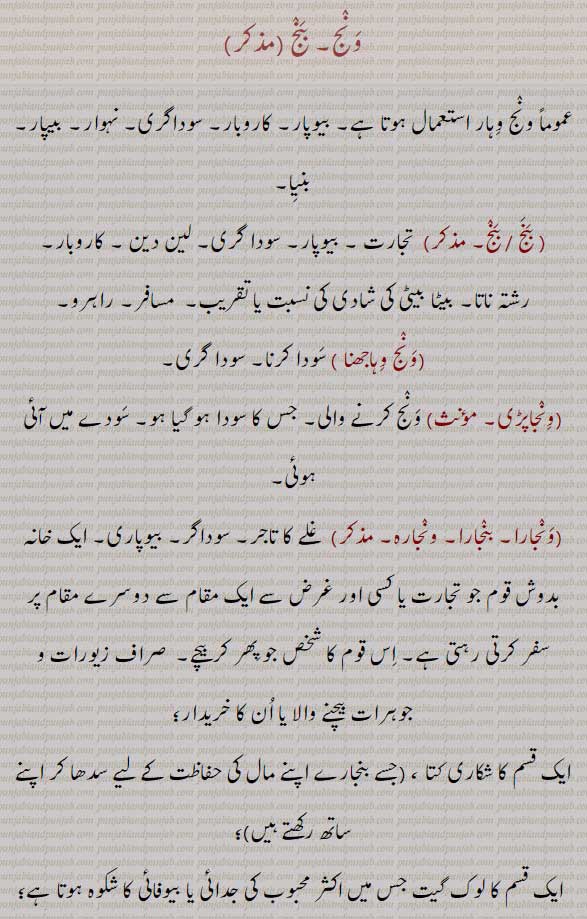 وَن٘ج ۔ بَن٘ج (مذکر)
عموماً ون٘ج وِہار استعمال ہوتا ہے۔ بیوپار۔ کاروبار۔ سوداگری۔ نہوار۔ بیپار۔
بنیِا۔
(بَن٘جَ / بَن٘ج۔ مذکر) تجارت ۔ بیوپار۔ سودا گری۔ لین دین ۔ کاروبار۔
رشتہ ناتا۔ بیٹا بیٹی کی شادی کی نسبت یا تقریب۔ مسافر۔ راہرو۔
(وَن٘ج وِہاجھنا ) سَودا کرنا۔ سودا گری۔
(وِن٘جاپڑی۔ مؤنث) وَن٘ج کرنے والی۔ جس کا سودا ہو گیا ہو۔ سَودے میں آئی
ہوئی۔
(وَن٘جارا۔ بن٘جارا۔ ون٘جارہ۔ مذکر) غلے کا تاجر۔ سوداگر۔ بیوپاری۔ ایک خانہ
بدوش قوم جو تجارت یا کسی اور غرض سے ایک مقام سے دوسرے مقام پر
سفر کرتی رہتی ہے۔ اِس قوم کا شخص جو پھر کر بیچے۔ صراف زیورات و
جوہرات بیچنے والا یا اُن کا خریدار؛
ایک قسم کا شکاری کتا ، (جسے بنجارے اپنے مال کی حفاظت کے لیے سدھا کر اپنے
ساتھ رکھتے ہیں)؛
ایک قسم کا لوک گیت جس میں اکثر محبوب کی جدائی یا بیوفائی کا شکوہ ہوتا ہے؛